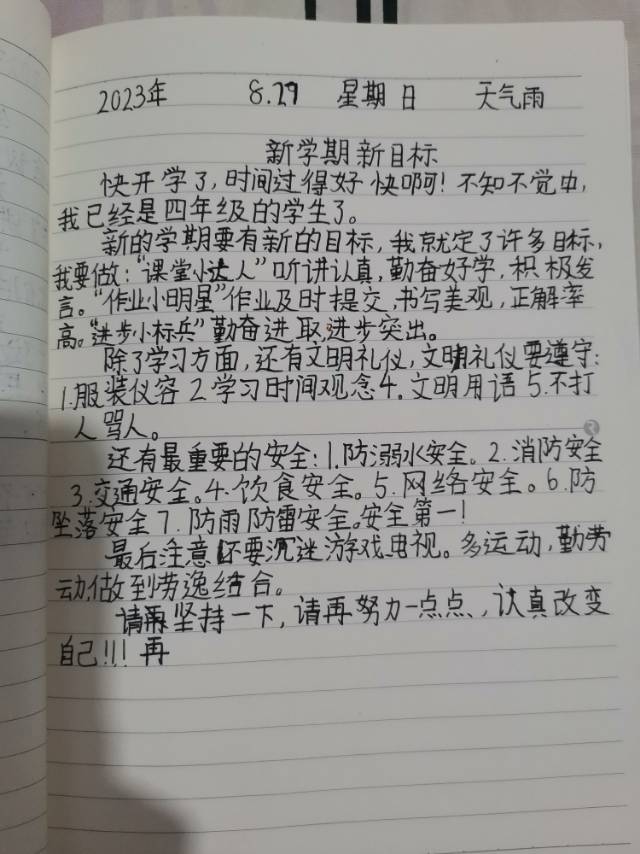 2023年 8.29 星期日 天气雨
新学期新目标
快开学了,时间过得好快啊!不知不觉中,
我已经是四年级的学生了。
新的学期要有新的目标,我就定了许多目标,
我要做:“课堂小达人”听讲认真,勤奋好学,积极发
言。“作业小明星”作业及时提交,书写美观,正解率
高。“进步小标兵”勤奋进取,进步突出。
除了学习方面,还有文明礼仪,文明礼仪要遵守:
1.服装仪容 2.学习时间观念4.文明用语 5.不打
人骂人。
还有最重要的安全:1.防溺水安全。2.消防安全
3.交通安全。4.饮食安全。5.网络安全。6.防
坠落安全7.防雨防雷安全。安全第一!
最后注意不要沉迷游戏电视。多运动,勤劳
动,做到劳逸结合。
请再坚持一下,请再努力一点点,认真改变
自己!!!再